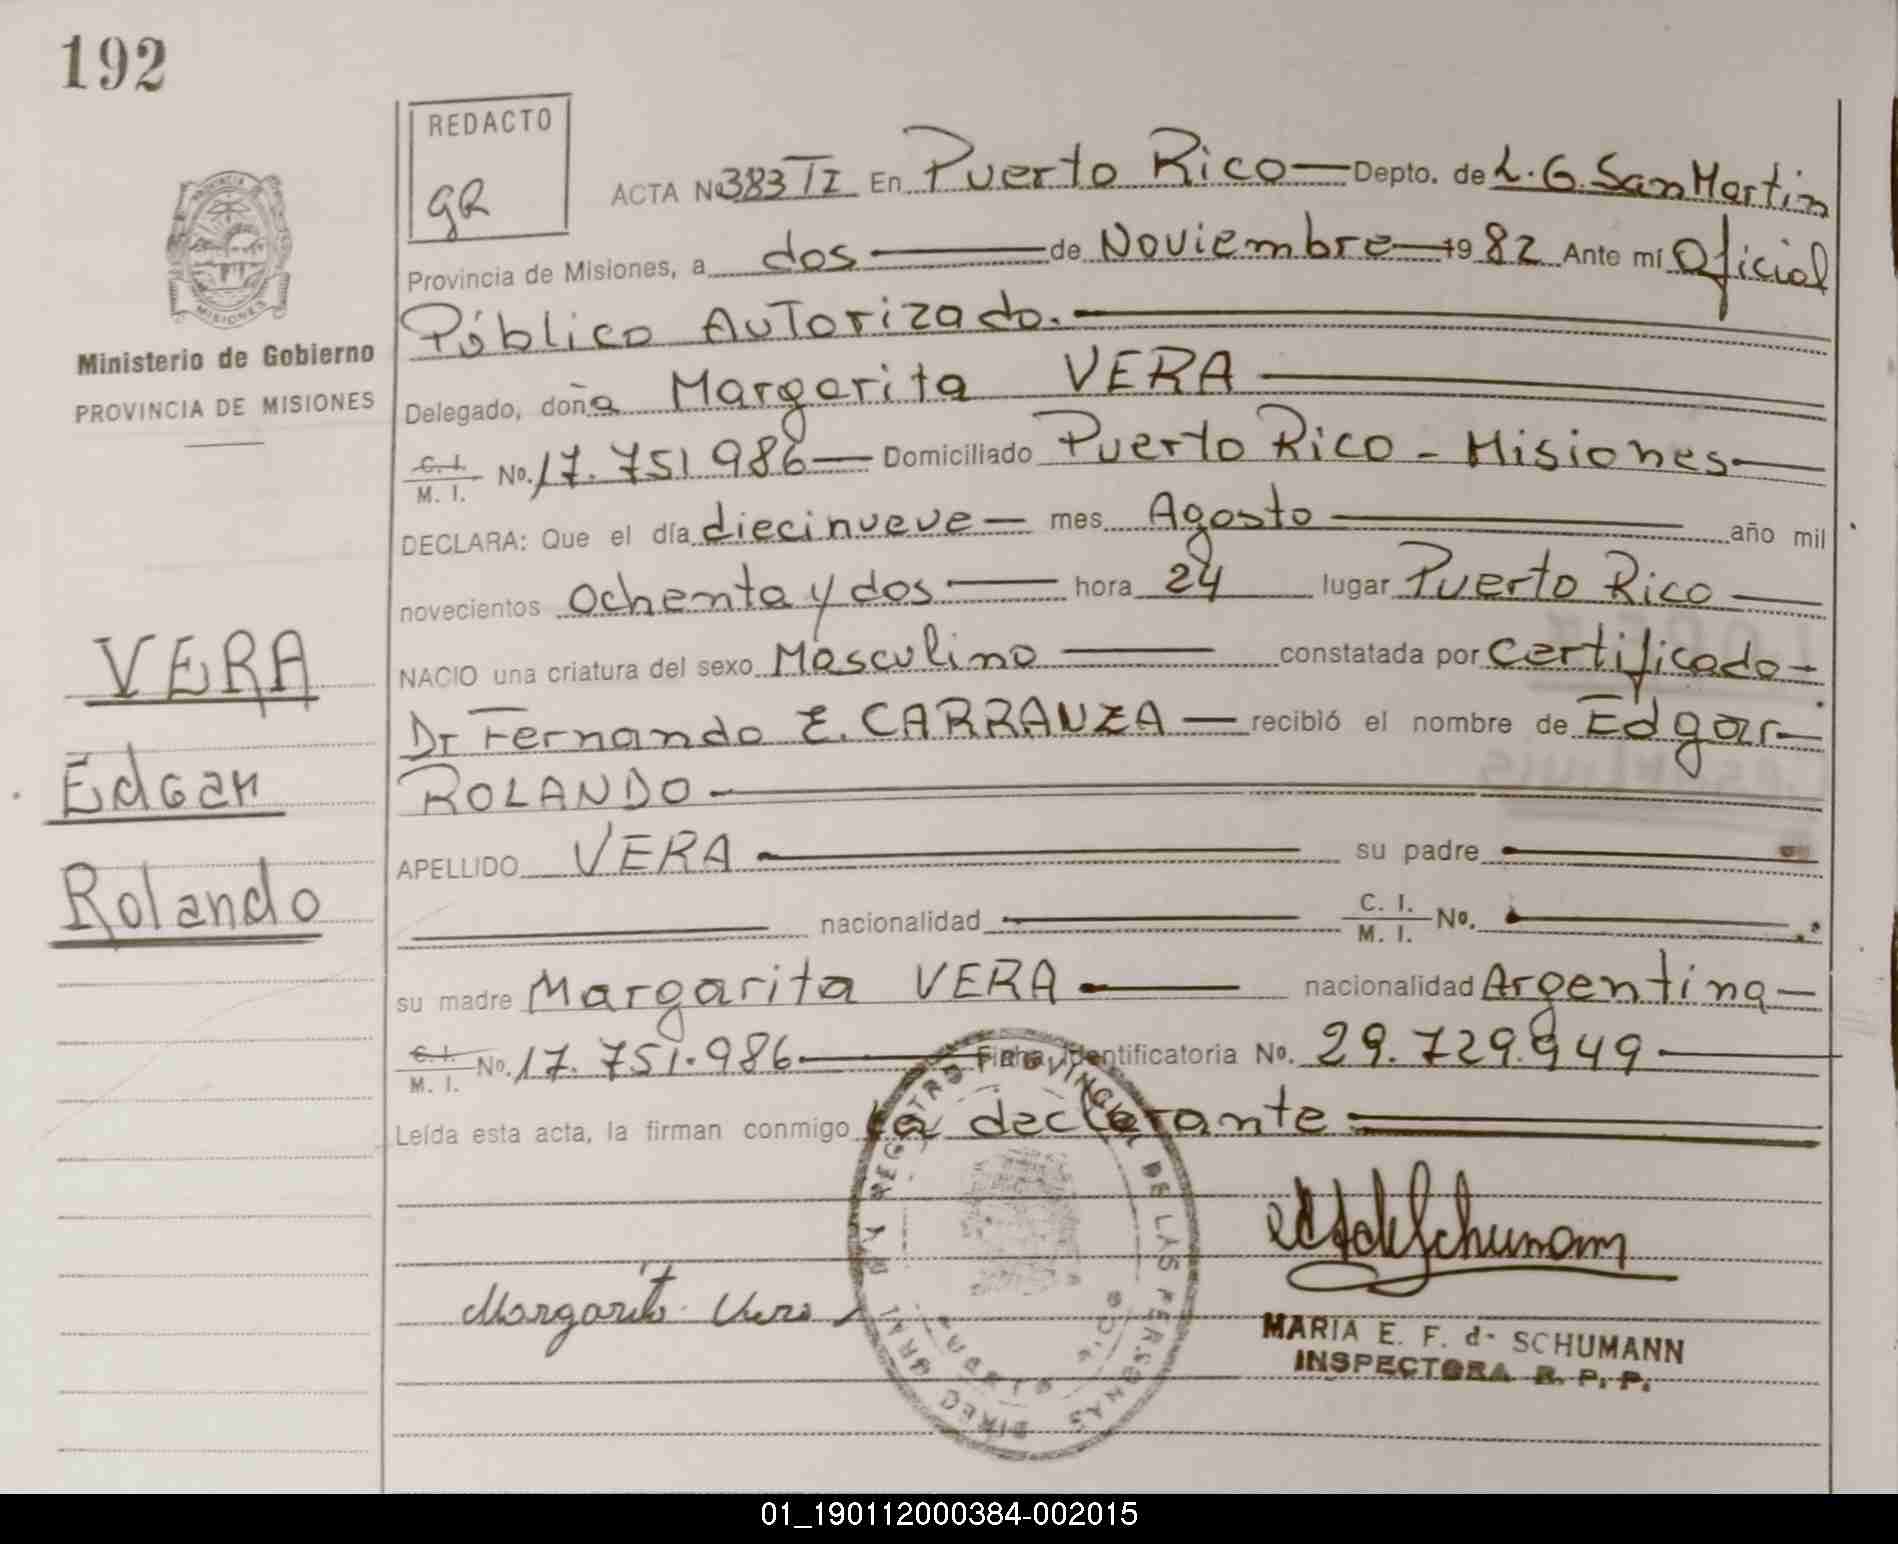 192
REDACTO
gR
ACTA No 383 TI En Puerto Rico — Depto. de L. G. San Martin
Provincia de Misiones, a dos — de Noviembre — 1982 Ante mí Oficial
Público Autorizado.
Ministerio de Gobierno
PROVINCIA DE MISIONES
Delegado, doña Margarita VERA
C. I. / M. I. No. 17.751986 — Domiciliado Puerto Rico - Misiones
DECLARA: Que el día diecinueve — mes Agosto — año mil
novecientos ochenta y dos — hora 24 lugar Puerto Rico
VERA
NACIO una criatura del sexo Masculino — constatada por Certificado -
Dr Fernando E. CARRANZA — recibió el nombre de Edgar
Edgar
ROLANDO
APELLIDO VERA — su padre
Rolando
nacionalidad — C. I. / M. I. No.
su madre Margarita VERA — nacionalidad Argentina —
C. I. / M. I. No. 17.751.986 — Ficha Identificatoria No. 29.729.949
Leída esta acta, la firman conmigo la declarante
Margarita Vera
MARIA E. F. de SCHUMANN
INSPECTORA R. P. P.
DIREC. GRAL. REGISTRO PROVINCIAL DE LAS PERSONAS
PUERTO RICO
PROVINCIA
MISIONES
01_190112000384-002015